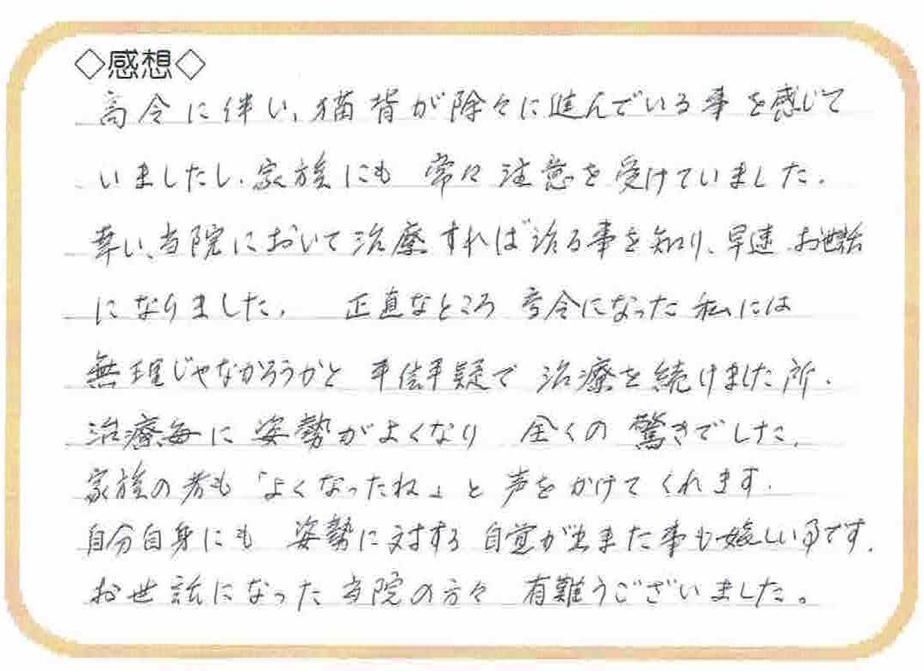 ◇感想◇
高令に伴い、猫背が除々に進んでいる事を感じて
いましたし、家族にも 常々 注意を受けていました。
幸い、当院において治療すれば治る事を知り、早速 お世話
になりました。 正直なところ 高令になった私には
無理じゃなかろうかと 半信半疑で 治療を続けました所、
治療毎に 姿勢がよくなり 全くの 驚きでした。
家族の者も「よくなったね」と 声をかけてくれます。
自分自身にも 姿勢に対する 自覚が出来た事も嬉しいです。
お世話になった 当院の方々 有難うございました。